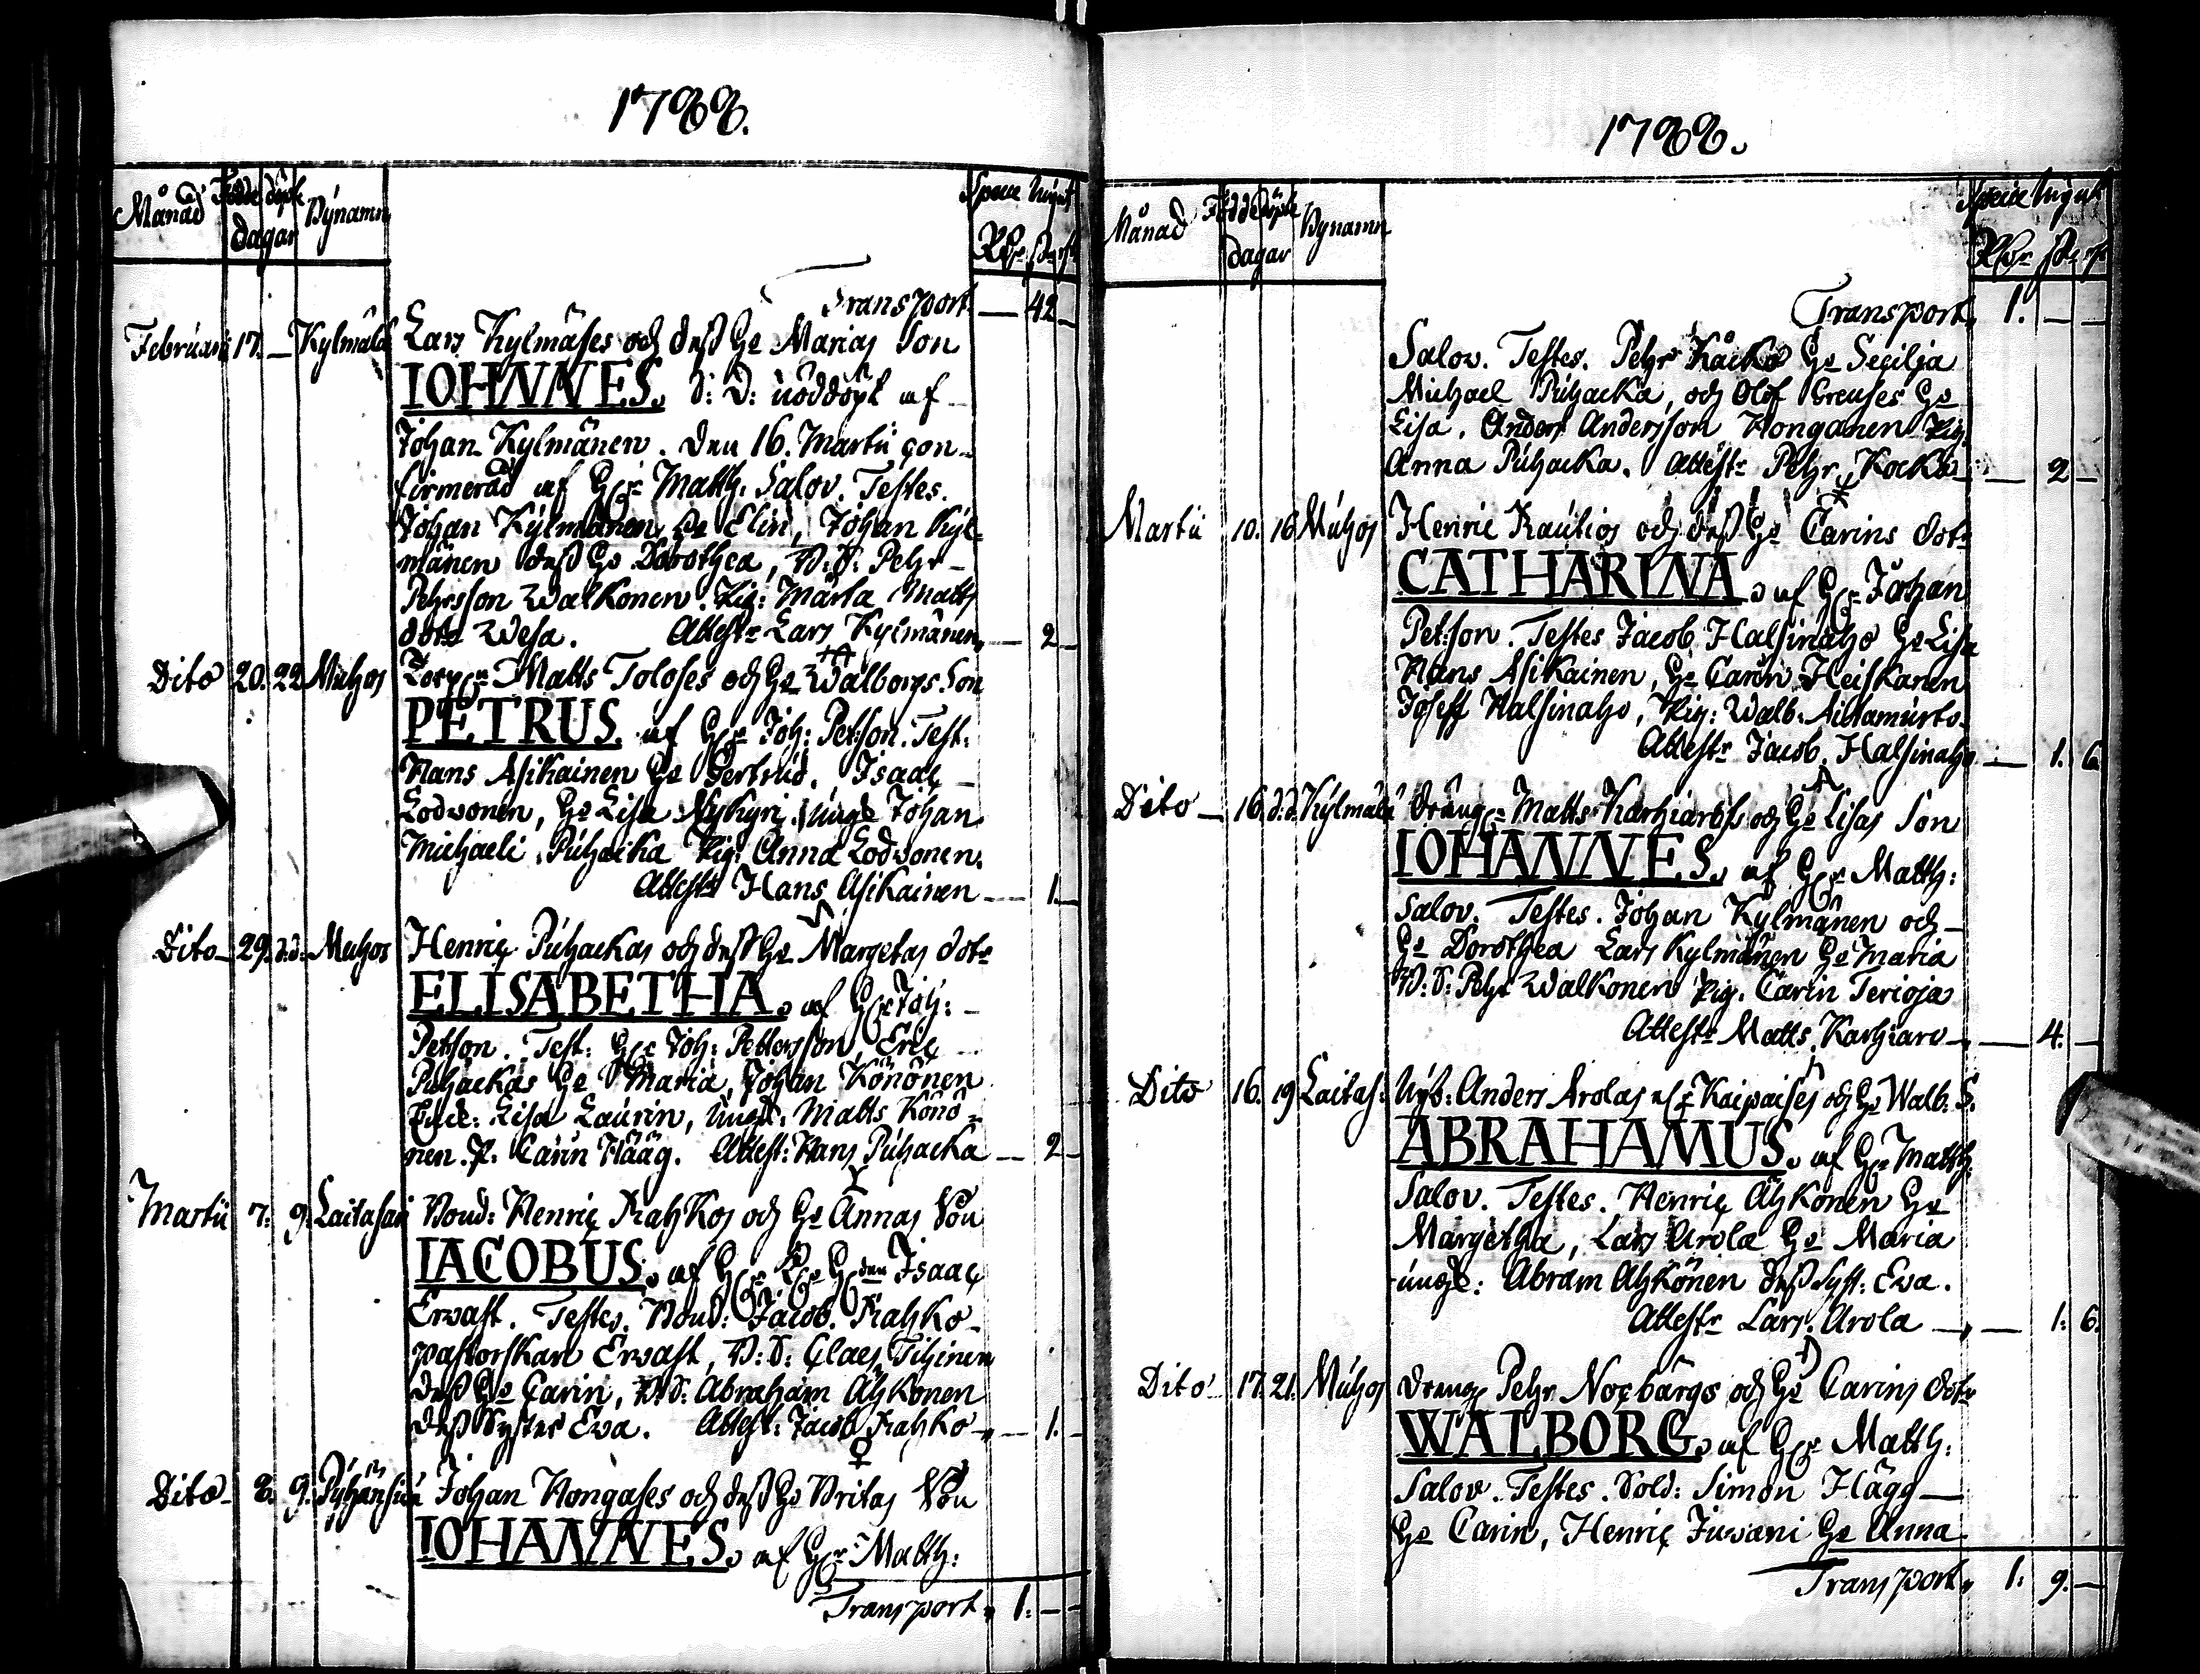 1788.
Månad Födde döpte dagar Bÿnamn
Specie
Transport — 42 —
Februarii 17. — Kylmälä Lars Kylmäses och dess Hu Marias Son
IOHANNES. S: D: nöddöpt af
Johan Kylmänen. den 16. Martii con-
firmerad af Hr Matth. Salov. Testes.
Johan Kylmänen Hu Elin, Johan Kyl-
mänen dess Hu Dorothea, B: S: Pehr
Pehrsson Walkonen. Pig: Märta Matts
dotr Wesa. Attestr Lars Kylmänen — 2 —
Dito 20. 22 Muhos Matts Toloses och Hu Walborgs Son
PETRUS. af Hr Joh: Petson. Test:
Hans Asikainen Hu Gertrud. Isaac
Lodwonen, Hu Lisa Nykyri. Unge Johan
Michaeli Puhacka Pig: Anna Lodwonen.
Attestr Hans Asikainen — 1. —
Dito — 29. d:d: Muhos Henric Puhackas och dess Hu Margetas dotr
ELISABETHA. af Hr Joh:
Petson. Test: Hr Joh: Pettersson, Eric
Puhackas Hu Maria, Johan Könönen
Lisa Laurin, Ungk: Matts Könö-
nen. P: Carin Hägg. Attest: Hans Puhacka — 2 —
Martii 7. 9. Laitasari Bond: Henric Rahkos och Hu Annas Son
IACOBUS. af Hr Isaac
Erwast. Testes. Bond: Jacob Rahko
pastorskan Erwast, B: S: Claes Tihinen
dess Hu Carin, B: S: Abraham Ahkonen
dess Syster Eva. Attest: Jacob Rahko — 1. —
Dito — 8. 9. Pyhänsivu Johan Hongases och dess Hu Britas Son
IOHANNES. af Hr Matth:
Transport 1. — —
1788.
Månad Födde döpte dagar Bynamn
Specie
Transport 1. — —
Salov. Testes. Pehr Kåcko Hu Secilja
Michael Puhacka, och Olof Greuses Hu
Lisa. Anders Andersson Honganen Pig.
Anna Puhacka. Attestr Pehr Kocko — 2 —
Martii 10. 16. Muhos Henric Rautios och dess Hu Carins dotr
CATHARINA. af Hr Johan
Petson. Testes Jacob Halsinaho Hu Lisa
Hans Asikainen, Hu Carin Heiskanen
Joseff Halsinaho, Pig: Walb:
Attestr Jacob Halsinaho — 1. 6.
Dito — 16. d:d: Kylmälä dräng Matts Karhiaros och Hu Lisas Son
IOHANNES. af Hr Matth:
Salov. Testes. Johan Kylmänen och
Hu Dorothea Lars Kylmänen Hu Maria
B: S: Pehr Walkonen Pig. Carin Terioja
Attestr Matts Karhiaro — 4. —
Dito 16. 19 Laitas: Nyb: Anders Arolas Kaipaises och Hu Walb: S.
ABRAHAMUS. af Hr Matth:
Salov. Testes. Henric Ahkonen Hu
Margetha, Lars Arola Hu Maria
ungk: Abram Ahkönen dess Syst: Eva.
Attestr Lars Arola — 1: 6.
Dito 17. 21. Muhos dräng Pehr Norbärgs och Hu Carins dotr
WALBORG. af Hr Matth:
Salov. Testes. Sold: Simon Hägg
Hu Carin, Henric Juwani Hu Anna
Transport 1. 9. —